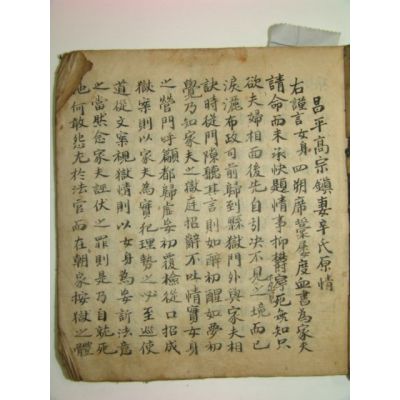 昌平高宗鎮妻辛氏原情
右謹言女身四朔席藁屢度血書為家夫
請命而未承快題情事抑欝寧死無知只
欲夫婦相面後先自引决不見之境而已
淚灑布政司前歸到縣獄門外與家夫相
訣時從門隙聽其言則如醉初醒如夢初
覺乃知家夫之獄庭招辭不以情實女身
之營門呼籲都歸虛妄初覆檢從口招成
獄案則以家夫為實犯理勢之必至巡使
道從文案視獄情則以女身為妄訴法意
之當然念家夫誣伏之罪則是乃自就死
地何敢怨尤於法官而在朝家按獄之體